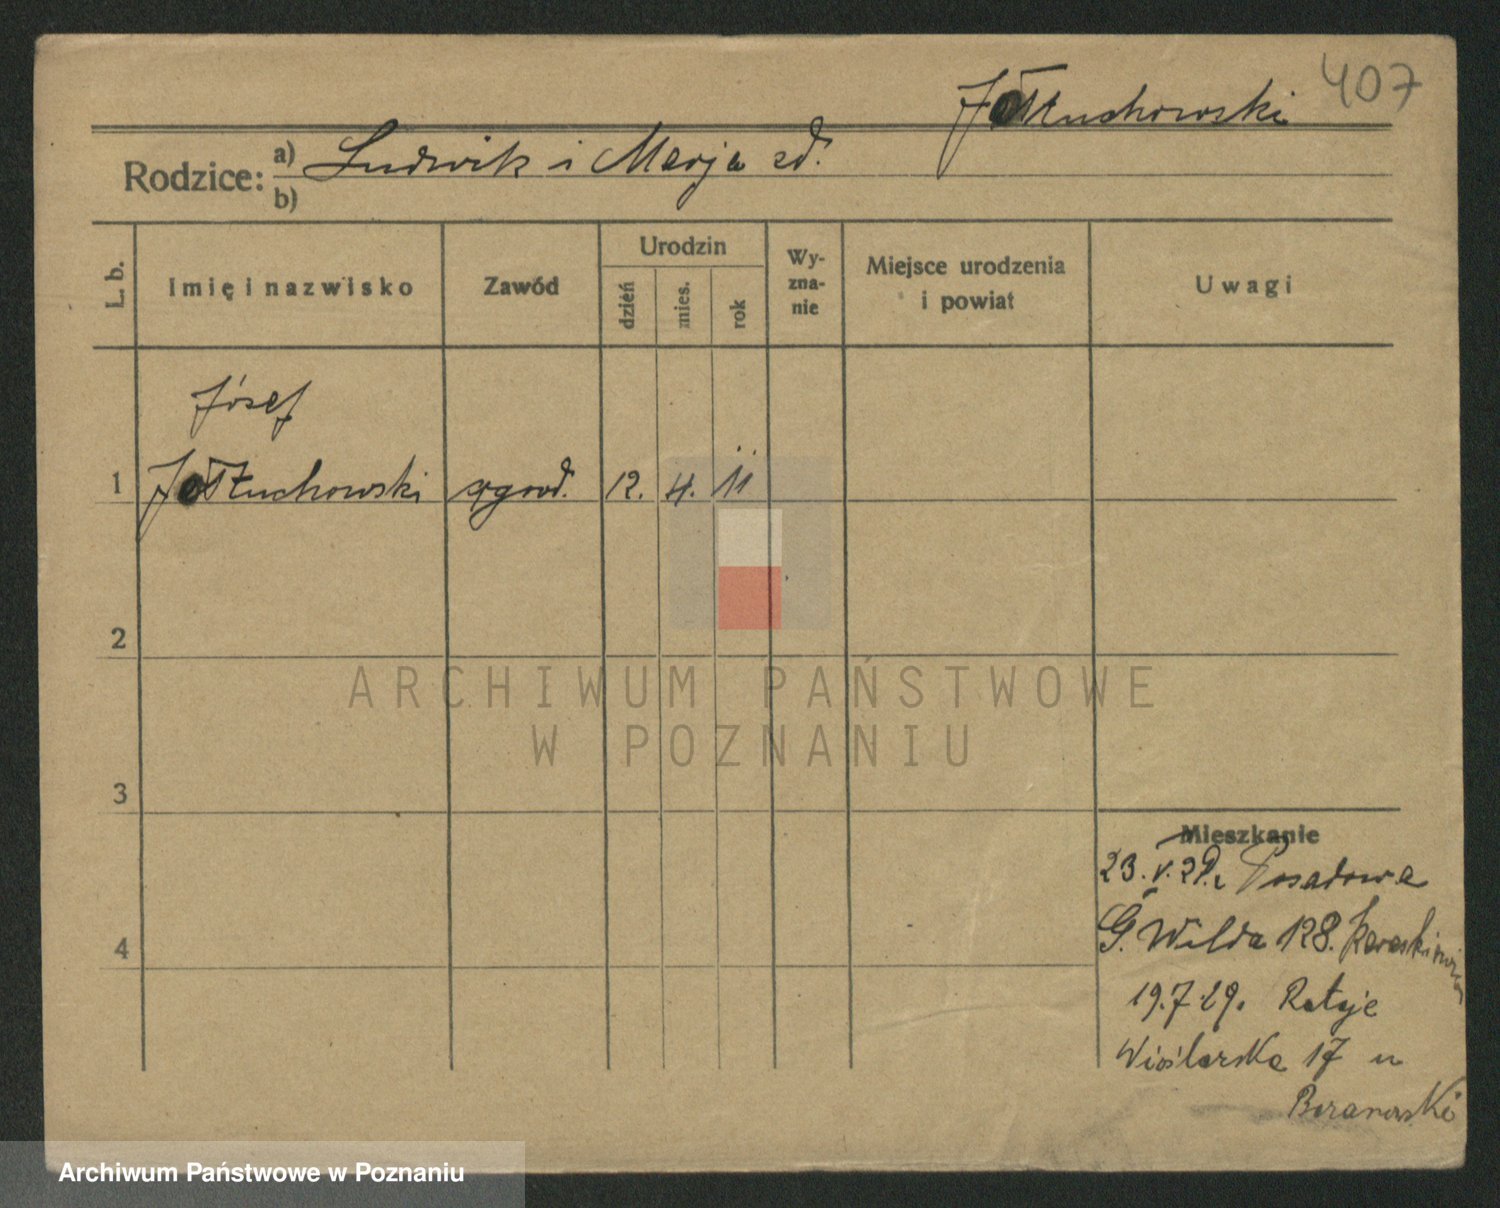 407
Jołtuchowski
Rodzice: a) Ludwik i Marja zd.
b)
L. b. Imię i nazwisko Zawód Urodzin dzień mies. rok Wy-zna-nie Miejsce urodzenia i powiat Uwagi
Józef
1 Jołtuchowski ogrod. 12. 4. 11
2
3
4
Mieszkanie
23. V. 29. Posadowa
G. Wilda 128.
19.7.29. Rataje
Wioślarska 17 u
Baranowski
ARCHIWUM PAŃSTWOWE
W POZNANIU
Archiwum Państwowe w Poznaniu